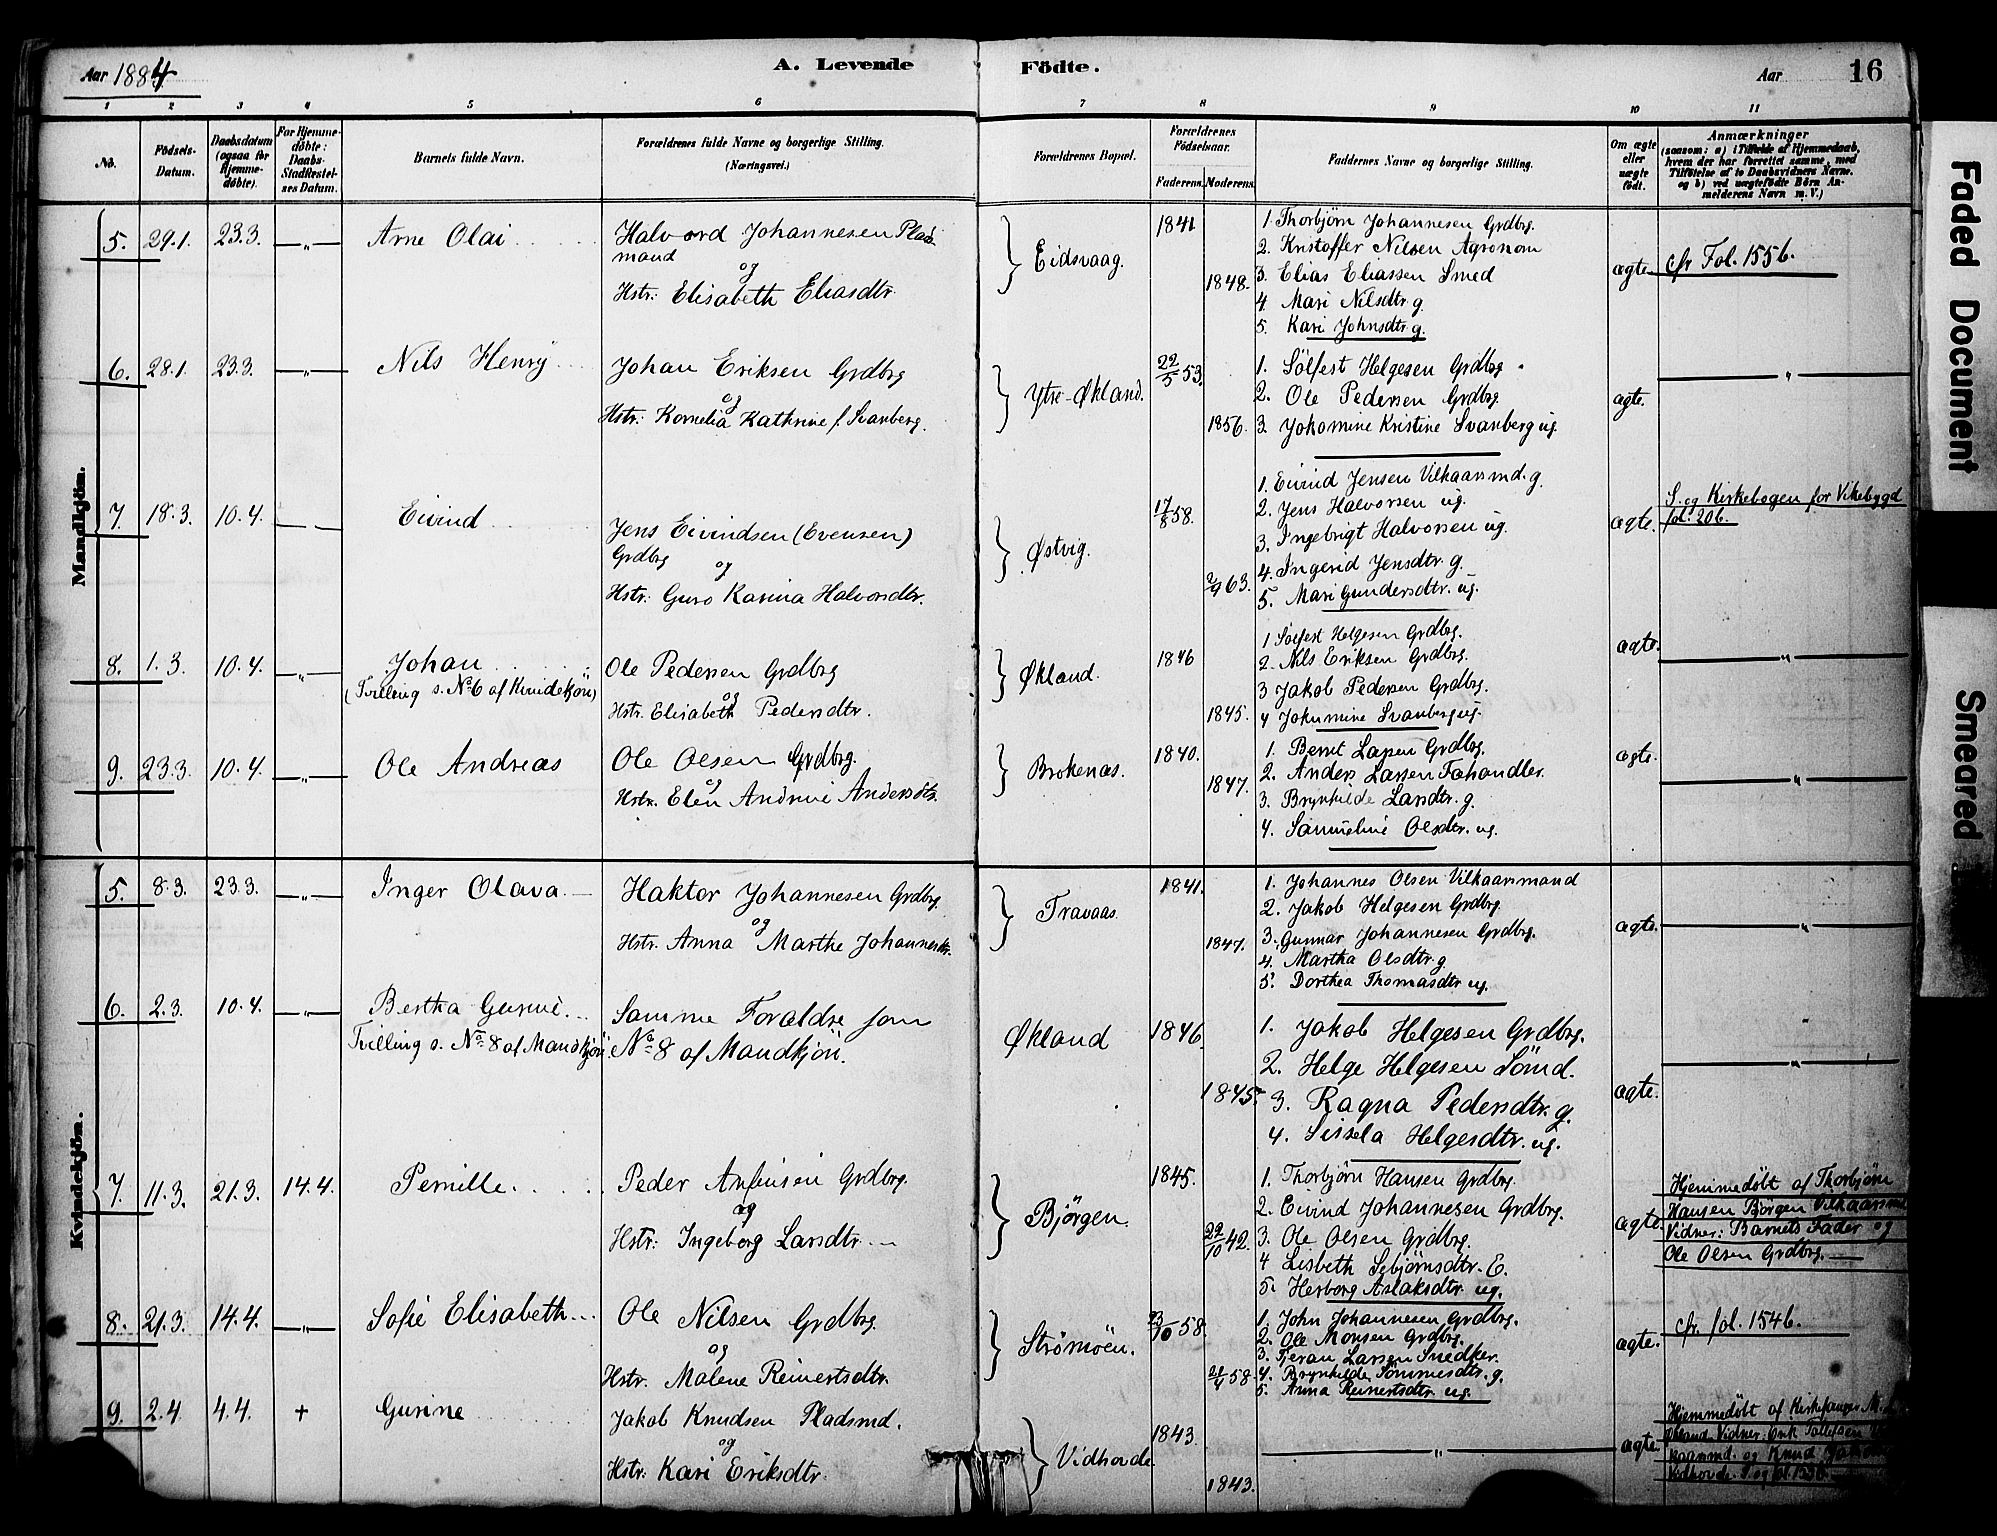 Aar 1884
A. Levende Födte.
Aar 16
1 2 3 4 5 6 7 8 9 10 11
No.
Födsels-Datum.
Daabsdatum (ogsaa for Hjemmedöbte).
For Hjemmedöbte: Daabs-Stadfæstelses Datum.
Barnets fulde Navn.
Forældrenes fulde Navne og borgerlige Stilling.
(Næringsvei.)
Forældrenes Bopæl.
Forældrenes Födselsaar.
Faderens. Moderens.
Faddernes Navne og borgerlige Stilling.
Om ægte eller uægte födt.
Anmærkninger
(saasom: a) i Tilfælde af Hjemmedaab,
hvem der har forrettet samme, med
Tilföielse af to Daabsvidners Navne,
og b) ved uægtefödte Börn An-
melderens Navn m. V.)
Mandkjön.
5. 29.1. 23.3. —„— Arne Olai
Halvord Johannesen Plads
mand
og
Hstr: Elisabeth Eliasdtr.
Eidsvaag.
1841
1848.
1. Thorbjörn Johannesen Grdbrg.
2. Kristoffer Nilsen Agronom
3. Elias Eliassen Smed
4. Mari Nilsdtr. g.
5. Kari Johnsdtr. g.
ægte.
cfr Fol. 1556.
6. 28.1. 23.3. —„— Nils Henry
Johan Eriksen Grdbrg
og
Hstr: Kornelia Kathrine f. Svanberg.
Ytre-Økland.
22/5 53.
1856.
1. Sølfest Helgesen Grdbrg
2. Ole Pedersen Grdbrg.
3. Jokomine Kristine Svanberg ug.
ægte.
7. 18.3. 10.4. Eivind
Jens Eivindsen (Evensen)
Grdbrg
og
Hstr: Guro Karina Halvorsdtr.
Østvig.
17/8 58.
2/9 63.
1. Eivind Jensen Vilkaarsmd. g.
2. Jens Halvorsen ug.
3. Ingebrigt Halvorsen ug.
4. Ingerid Jensdtr. g.
5. Mari Gundersdtr. ug.
ægte.
S. og Kirkebogen for Vikebygd
fol. 206.
8. 1.3. 10.4. —„— Johan
(Tvilling s. No 6 af Kvindekjön)
Ole Pedersen Grdbrg
og
Hstr. Elisabeth Pedersdtr.
Økland.
1846
1845.
1 Sølfest Helgesen Grdbrg.
2. Nils Eriksen Grdbrg.
3 Jakob Pedersen Grdbrg.
4 Jokumine Svanberg ug.
ægte.
9. 23.3. 10.4. —„— Ole Andreas
Ole Olsen Grdbrg.
og
Hstr. Elen Andrine Andersdtr.
Brokenæs.
1840.
1847.
1. Berret Larsen Grdbrg.
2. Anders Larsen Fæhandler.
3. Brynhilde Larsdtr. g.
4. Sammeline Olsdtr. ug.
ægte.
Kvindekjön.
5. 8.3. 23.3. —„— Inger Olava
Haktor Johannesen Grdbrg.
og
Hstr. Anna Marthe Johannesdtr.
Travaas.
1841.
1847.
1. Johannes Olsen Vilkaarsmand
2. Jakob Helgesen Grdbrg.
3. Gunnar Johannesen Grdbrg.
4. Martha Olsdtr. g
5. Dorthea Thomasdtr ug.
ægte.
6. 2.3. 10.4. —„— Bertha Gurine
Tvilling s. No. 8 af Mandkjön
Samme Forældre som
No. 8 af Mandkjön.
Økland
1846.
1845.
1. Jakob Helgesen Grdbrg.
2. Helge Helgesen Sömd.
3. Ragna Pedersdtr. g.
4. Sissela Helgesdtr. ug.
ægte.
7. 11.3. 21.3. 14.4. Pernille.
Peder Anfinsen Grdbrg.
og
Hstr: Ingeborg Larsdtr.
Björgen.
1845.
22/10 42.
1. Thorbjörn Hansen Grdbrg.
2. Eivind Johannesen Grdbrg.
3. Ole Olsen Grdbrg.
4 Lisbeth Sebjørnsdtr. E.
5. Herborg Aslaksdtr. ug.
ægte.
Hjemmedöbt af Thorbjörn
Hansen Björgen Vilkaarsmd.
Vidner: Barnets Fader og
Ole Olsen Grdbrg.
8. 21.3. 14.4. —„— Sofie Elisabeth
Ole Nilsen Grdbrg.
og
Hstr. Malene Reinertsdtr.
Strømöen.
23/10 58.
21/4 58.
1. John Johannesen Grdbrg.
2. Ole Monsen Grdbrg.
3. Tjeran Larsen Snedker.
4. Brynhilde Sømmesdtr. g.
5. Anna Reinertsdtr. ug.
ægte.
cfr. fol. 1546.
9. 2.4. 4.4. + Gurine
Jakob Knudsen Pladsmd.
og
Hstr: Kari Eriksdtr.
Vidhovde
1843.
1843.
ægte.
Hjemmedöbt af Kirkesanger M.
Økland. Vidner: Erik Tollefsen
kaarsmd. og Knud
Vidhovde. S. og fol. 1536.
Faded Document
Smeared